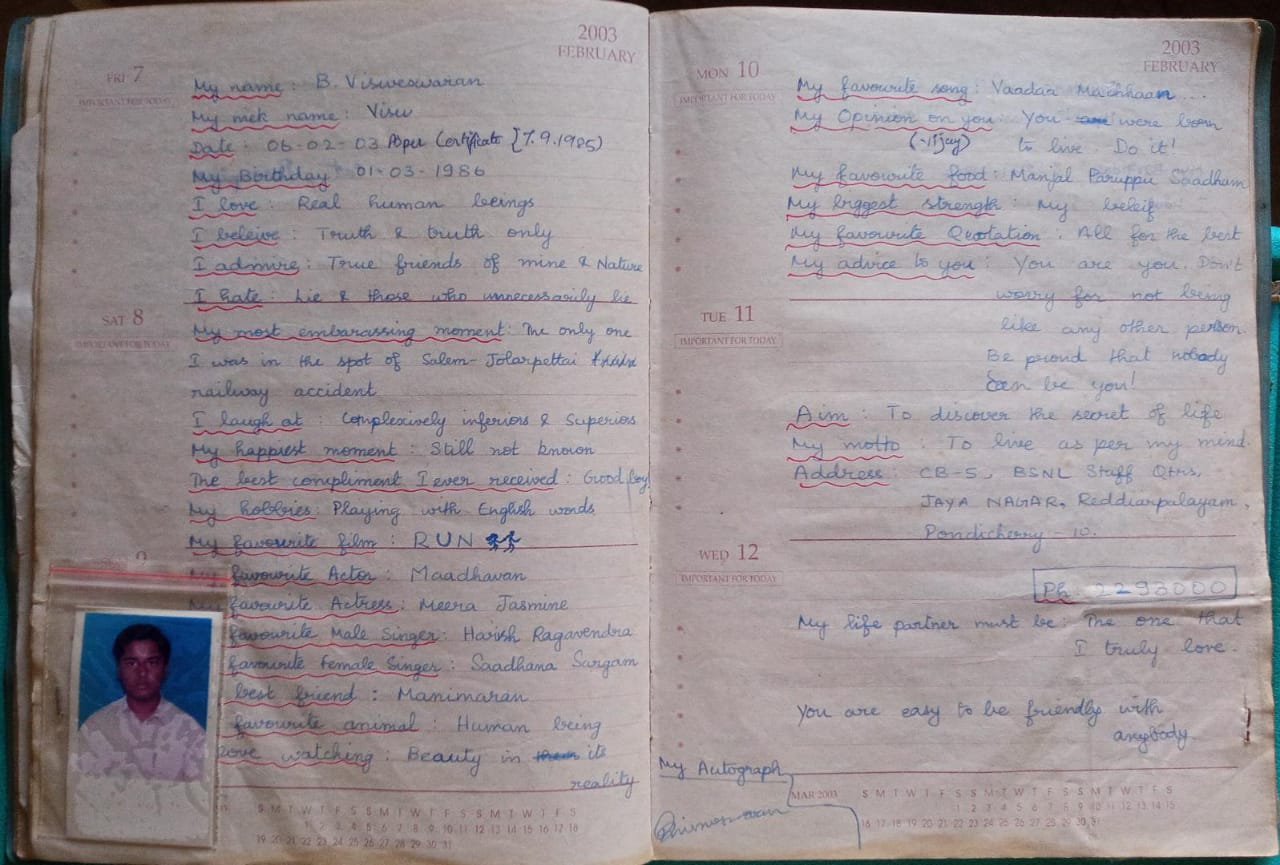 2003
FEBRUARY
FRI 7
IMPORTANT FOR TODAY
My name : B. Visweswaran
My nick name : Visu
Date : 06-02-03 As per Certificate [7.9.1985)
My Birthday 01-03-1986
I love : Real human beings
I beleive : Truth & truth only
I admire : True friends of mine & Nature
I hate : Lie & those who unnecessarily lie
SAT 8
IMPORTANT FOR TODAY
My most embarassing moment : The only one
I was in the spot of Salem-Jolarpettai
railway accident
I laugh at : Complexively inferiors & Superios
My happiest moment : Still not known
The best compliment I ever received : Good boy
My hobbies : Playing with English words
My favourite film : RUN
9
My favourite Actor : Maadhavan
My favourite Actress : Meera Jasmine
favourite Male Singer : Harish Ragavendra
favourite Female Singer : Saadhana Sargam
best friend : Manimaran
favourite animal : Human being
love watching : Beauty in its
reality
S M T W T F S S M T W T F S S M T W T F S
1 2 3 4 5 6 7 8 9 10 11 12 13 14 15 16 17 18
19 20 21 22 23 24 25 26 27 28 29 30 31
2003
FEBRUARY
MON 10
IMPORTANT FOR TODAY
My favourite song : Vaadaa Machhaan ....
My Opinion on you : You were born
to live. Do it!
My favourite food : Manjal Paruppu Saadham
My biggest strength : My beleif
My favourite Quotation : All for the best
My advice to you : You are you. Don't
worry for not being
TUE 11
IMPORTANT FOR TODAY
like any other person.
Be proud that nobody
can be you!
Aim : To discover the secret of life
My motto : To live as per my mind.
Address : CB-5, BSNL Staff Qtrs,
JAYA NAGAR, Reddiarpalayam,
Pondicherry - 10.
WED 12
IMPORTANT FOR TODAY
Ph 2293000
My life partner must be : The one that
I truly love.
You are easy to be friendly with
anybody.
My Autograph
MAR 2003
S M T W T F S S M T W T F S S M T W T F S
1 2 3 4 5 6 7 8 9 10 11 12 13 14 15
16 17 18 19 20 21 22 23 24 25 26 27 28 29 30 31